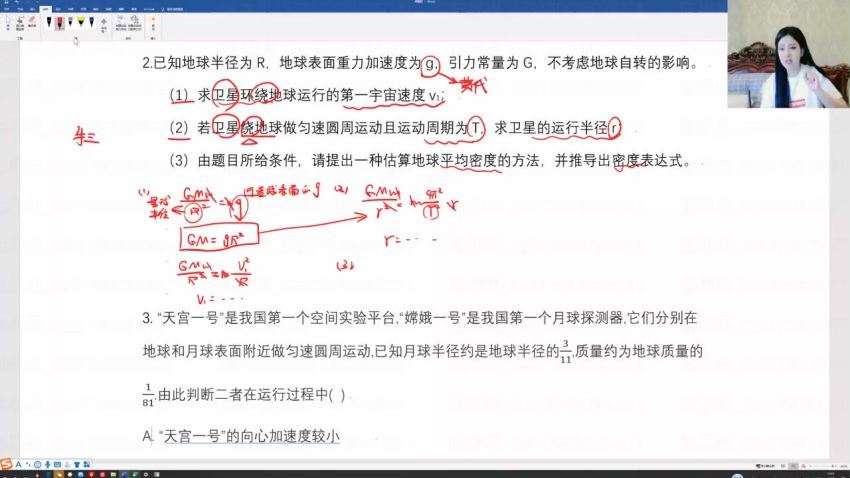 2.已知地球半径为 R，地球表面重力加速度为 g，引力常量为 G，不考虑地球自转的影响。
黄代
（1）求卫星环绕地球运行的第一宇宙速度 v₁；
（2）若卫星绕地球做匀速圆周运动且运动周期为 T，求卫星的运行半径 r；
（3）由题目所给条件，请提出一种估算地球平均密度的方法，并推导出密度表达式。
(1) GMm/R² = mg
(2) GMm/r² = m 4π²/T² r
GM = gR²
r = ...
GMm/R² = m V₁²/R
(3)
V₁ = ...
3. “天宫一号”是我国第一个空间实验平台,“嫦娥一号”是我国第一个月球探测器,它们分别在
地球和月球表面附近做匀速圆周运动,已知月球半径约是地球半径的3/11,质量约为地球质量的
1/81.由此判断二者在运行过程中( )
A. “天宫一号”的向心加速度较小